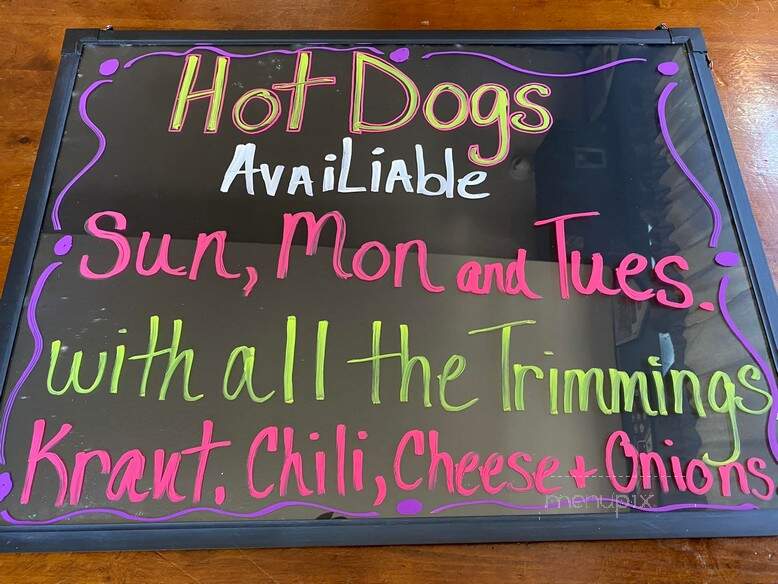 Hot Dogs
AvAiLiAble
Sun, Mon and Tues.
with all the Trimmings
Kraut, Chili, Cheese + Onions
menupix